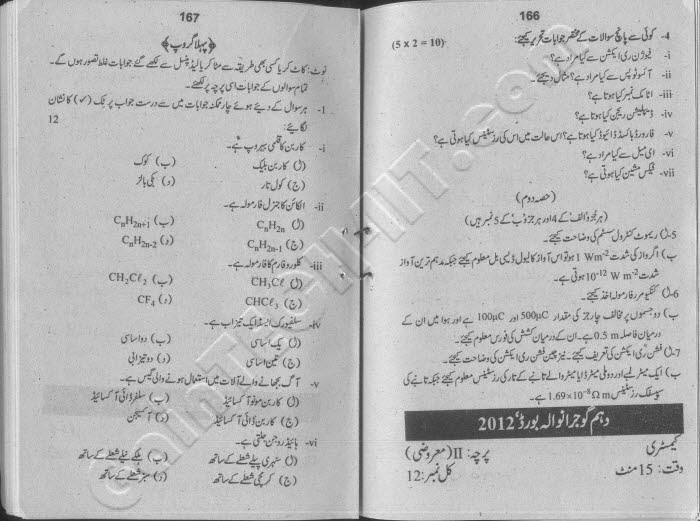 166
4- کوئی سے پانچ سوالات کے مختصر جوابات تحریر کیجئے: (5 x 2 = 10)
i- فیوژن ری ایکشن سے کیا مراد ہے؟
ii- آئسوٹوپس سے کیا مراد ہے؟ مثال دیجئے۔
iii- اٹامک نمبر کیا ہوتا ہے؟
iv- ڈیپلیشن ریجن کیا ہوتا ہے؟
v- فارورڈ بائسڈ ڈائیوڈ کیا ہوتا ہے؟ اس حالت میں اس کی رزسٹینس کیا ہوتی ہے؟
vi- ای میل سے کیا مراد ہے؟
vii- فیکس مشین کیا ہوتی ہے؟
(حصہ دوم)
(ہر جزو الف کے 4 اور ہر جزو ب کے 5 نمبر ہیں)
5-(ا) ریموٹ کنٹرول سسٹم کی وضاحت کیجئے۔
ب) اگر آواز کی شدت 1 Wm-2 ہو تو اس آواز کا لیول ڈیسی بل معلوم کیجئے جبکہ مدہم ترین آواز
شدت 10-12 W m-2 ہوتی ہے۔
6-(ا) کنکیو مرر فارمولہ اخذ کیجئے۔
ب) دو جسموں پر مخالف چارجز کی مقدار 500µC اور 100µC ہے اور ہوا میں ان کے
درمیان فاصلہ 0.5 m ہے۔ ان کے درمیان کشش کی فورس معلوم کیجئے۔
7-(ا) فشن ری ایکشن کی تعریف کیجئے۔ نیز چین فشن ری ایکشن کی وضاحت کیجئے۔
ب) ایک میٹر لمبے اور دو ملی میٹر ڈایا میٹر والے تانبے کے تار کی رزسٹینس معلوم کیجئے جبکہ تانبے کی
سپیسفک رزسٹینس 1.69×10-8 Ω m ہے۔
دہم گوجرانوالہ بورڈ 2012ء
کیمسٹری پرچہ: II (معروضی)
وقت: 15 منٹ کل نمبر: 12
167
(پہلا گروپ)
نوٹ: کاٹ کر یا کسی بھی طریقہ سے مٹا کر یا لیڈ پنسل سے لکھے گئے جوابات غلط تصور ہوں گے۔
تمام سوالوں کے جوابات اسی پرچہ پر لکھئے۔
1- ہر سوال کے دیئے ہوئے چار ممکنہ جوابات میں سے درست جواب پر ٹک (✓) کا نشان
لگایئے: 12
i- کاربن کا قلمی بہروپ ہے۔
(ا) کاربن بلیک (ب) کوک
(ج) کول تار (د) بکی بالز
ii- الکائن کا جنرل فارمولہ ہے۔
(ا) CnH2n (ب) CnH2n+1
(ج) CnH2n-1 (د) CnH2n-2
iii- کلوروفارم کا فارمولہ ہے۔
(ا) CH3Cℓ (ب) CH2Cℓ2
(ج) CHCℓ3 (د) CF4
iv- سلفیورک ایسڈ ایک تیزاب ہے۔
(ا) یک اساسی (ب) دو اساسی
(ج) تین اساسی (د) دو تیزابی
v- آگ بجھانے والے آلات میں استعمال ہونے والی گیس ہے۔
(ا) کاربن مونو آکسائیڈ (ب) سلفر ڈائی آکسائیڈ
(ج) کاربن ڈائی آکسائیڈ (د) آکسیجن
vi- ہائیڈروجن جلتی ہے۔
(ا) سنہری پیلے شعلے کے ساتھ (ب) ہلکے نیلے شعلے کے ساتھ
(ج) کرمچی شعلے کے ساتھ (د) سبز شعلے کے ساتھ